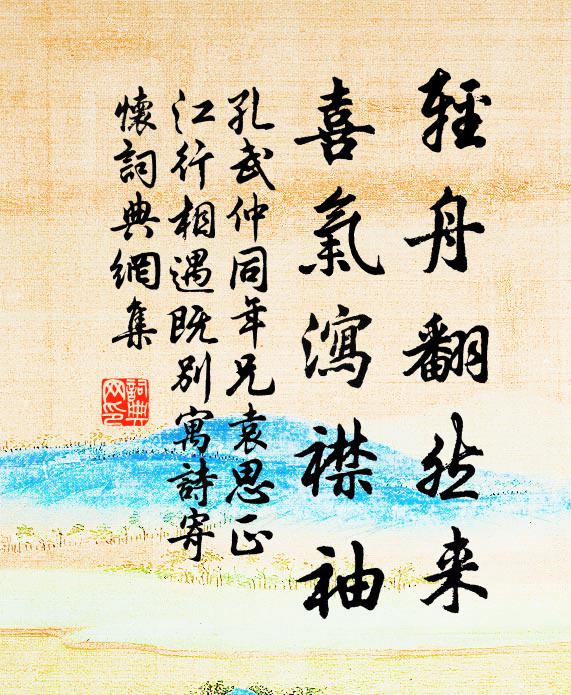 輕舟翻然来
喜氣瀉襟袖
孔武仲同年兄袁思正
江行相遇既別寓詩寄
懷詞典網集
詞典
网印